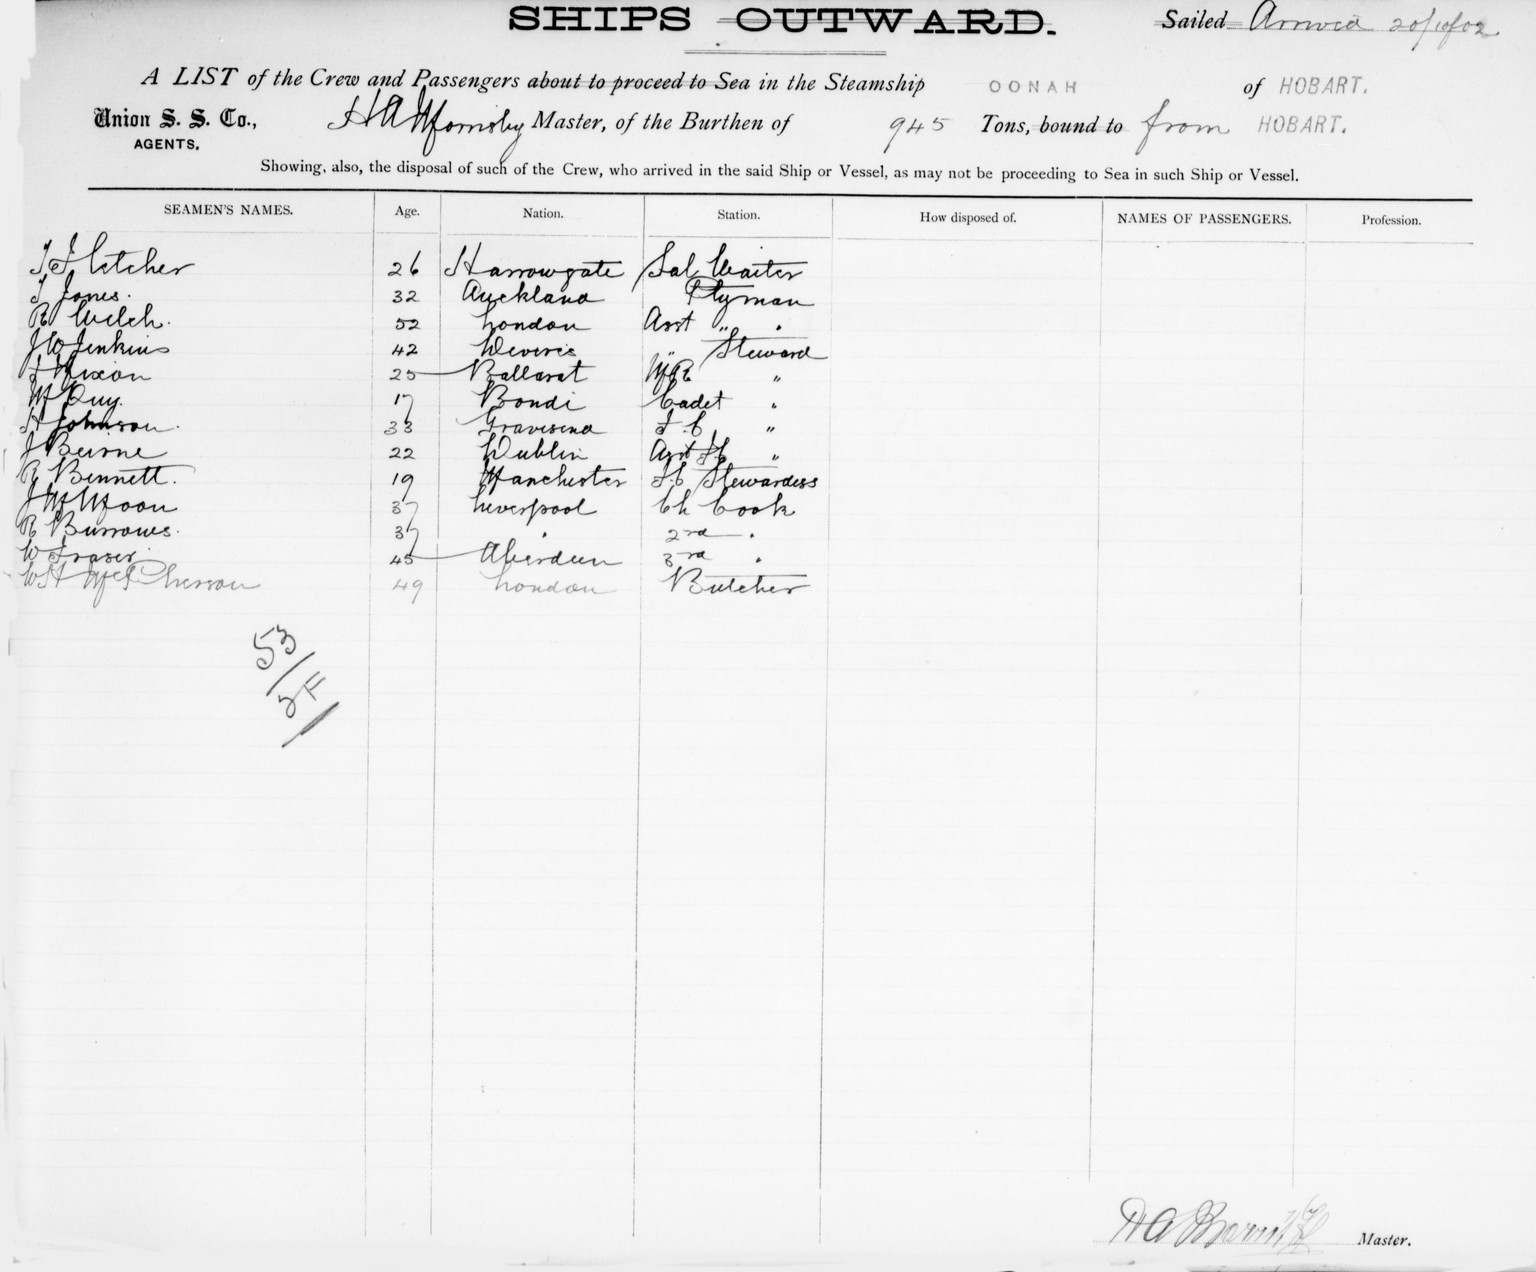 SHIPS OUTWARD.
Sailed Arrived 20/10/02
A LIST of the Crew and Passengers about to proceed to Sea in the Steamship OONAH of HOBART.
Union S. S. Co., Master, of the Burthen of 945 Tons, bound to from HOBART.
AGENTS.
Showing, also, the disposal of such of the Crew, who arrived in the said Ship or Vessel, as may not be proceeding to Sea in such Ship or Vessel.
SEAMEN'S NAMES. Age. Nation. Station. How disposed of. NAMES OF PASSENGERS. Profession.
T Fletcher 26 Harrowgate Sal Waiter
T Jones. 32 Auckland Ptyman
R Welch. 52 London Asst " "
J W Jenkins 42 " Steward
Nixon 25 Ballarat "
17 Bondi Cadet "
H Johnson. 33 Gravesend F.C. "
J Beirne 22 Dublin Asst "
R Bennett. 19 Manchester F.C Stewardess
J Moon 37 Liverpool Ch Cook
R Burrows. 37 " 2nd "
W Fraser 45 Aberdeen 3rd "
W H McPherson 49 London Butcher
53
Master.